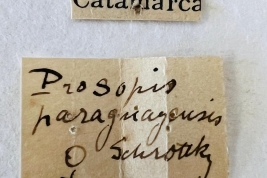 Catamarca
Prosopis
paraguayensis
Schrottky